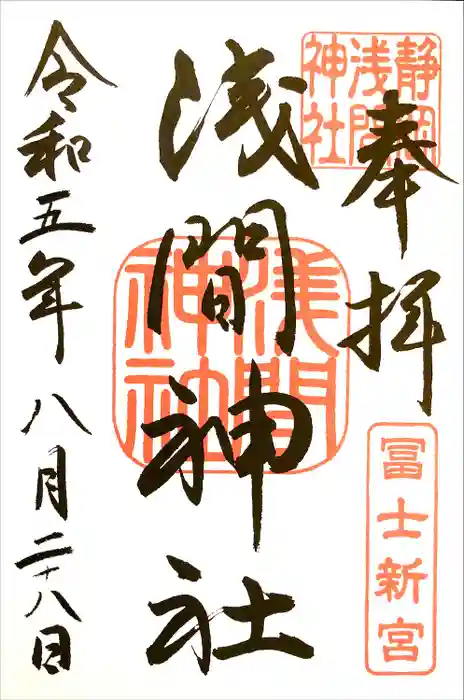 奉拝
静岡
浅間
神社
冨士新宮
浅間神社
浅間
神社
令和五年八月二十八日